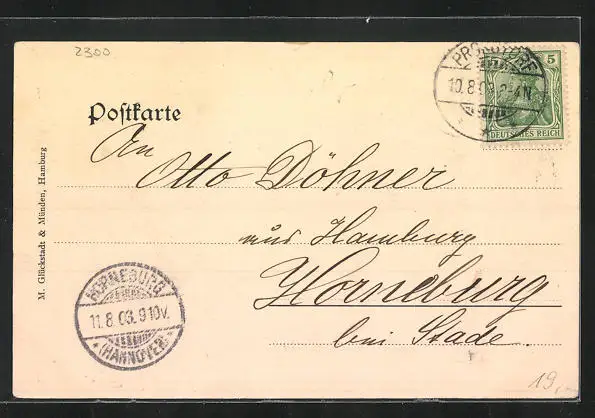 2300
5
10.8.03. 2-4N
DEUTSCHES REICH
Postkarte
An
Otto Döhner
aus Hamburg
Horneburg
bei Stade.
M. Glückstadt & Münden, Hamburg
HORNEBURG
11.8.03. 9 10V.
* (HANNOVER) *
19,-